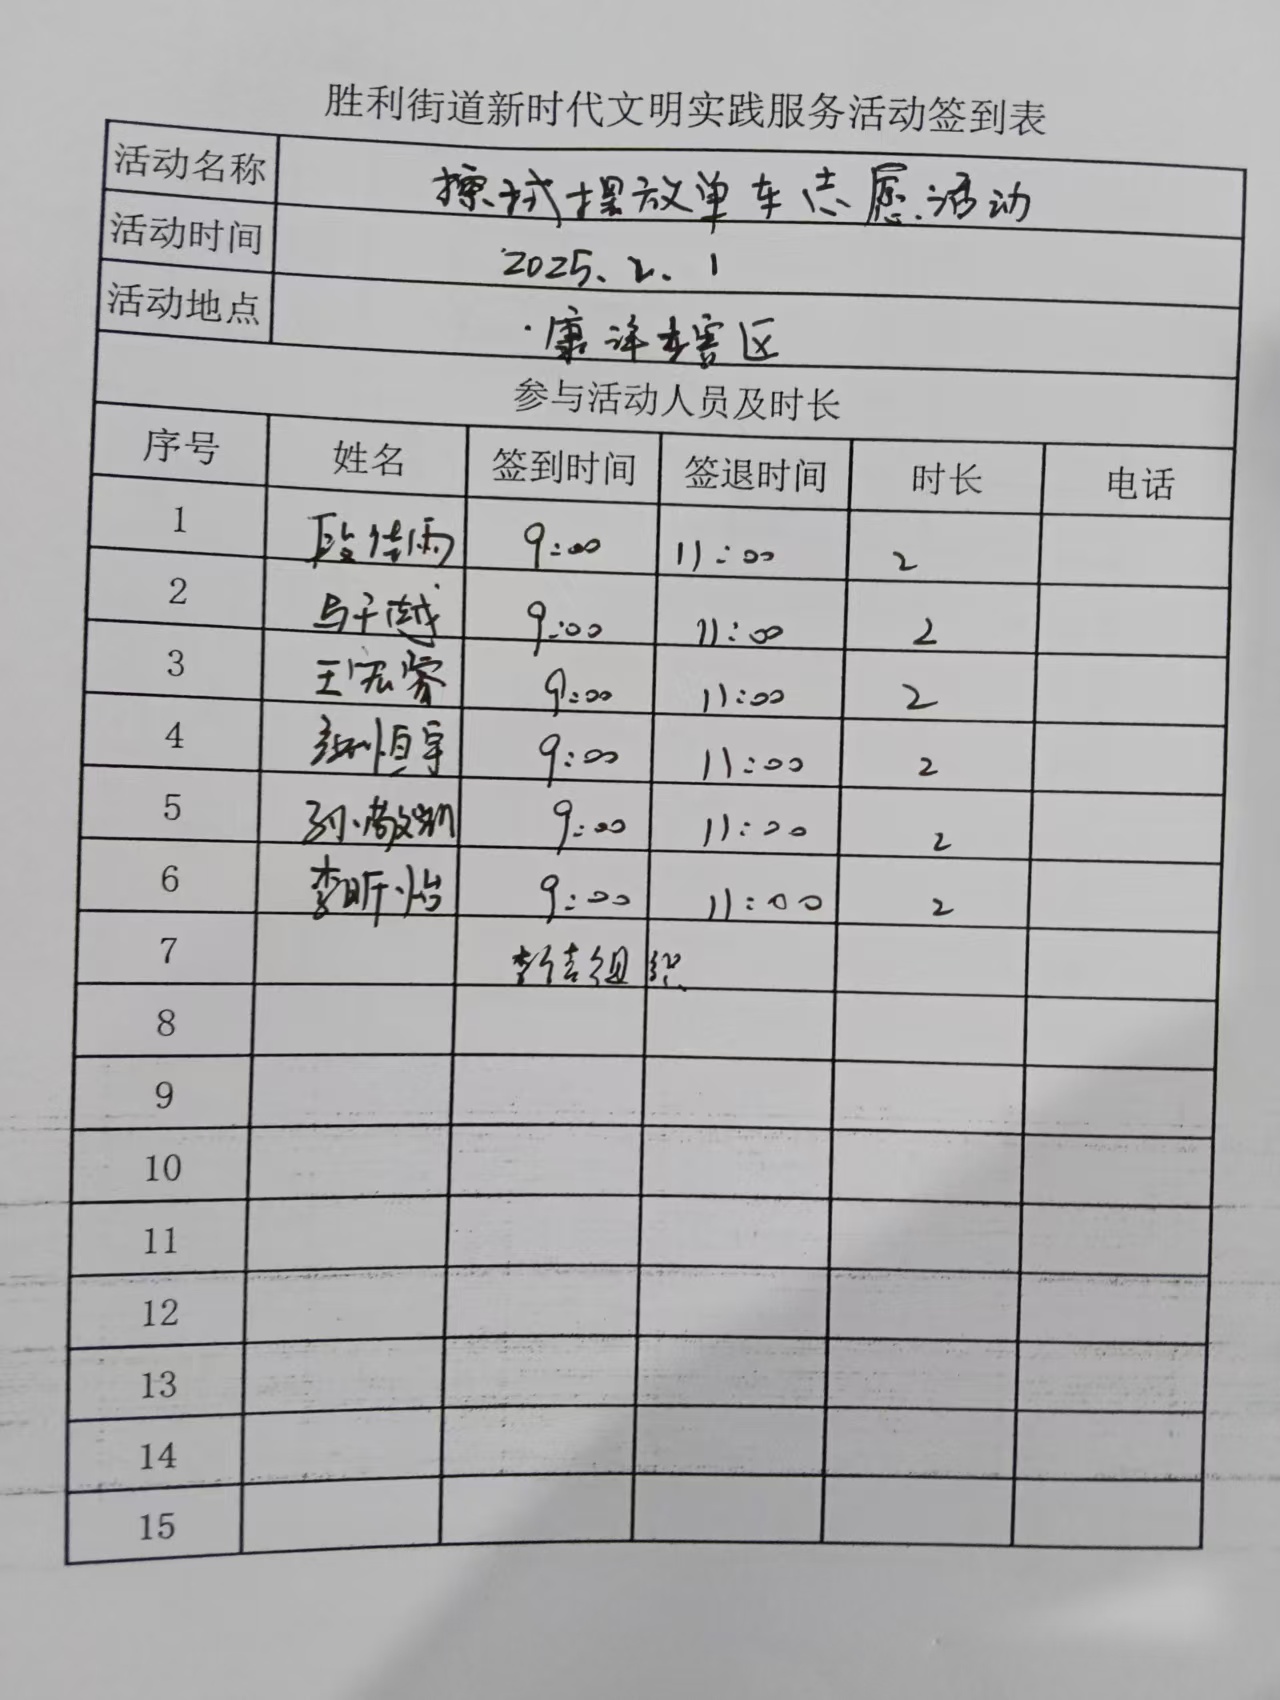 胜利街道新时代文明实践服务活动签到表
活动名称 擦拭摆放单车志愿活动
活动时间 2025.2.1
活动地点 康洋辖区
参与活动人员及时长
序号 姓名 签到时间 签退时间 时长 电话
1 段佳雨 9:00 11:00 2
2 马千越 9:00 11:00 2
3 王宏睿 9:00 11:00 2
4 恒宇 9:00 11:00 2
5 孙 9:00 11:00 2
6 李昕怡 9:00 11:00 2
7 组织
8
9
10
11
12
13
14
15